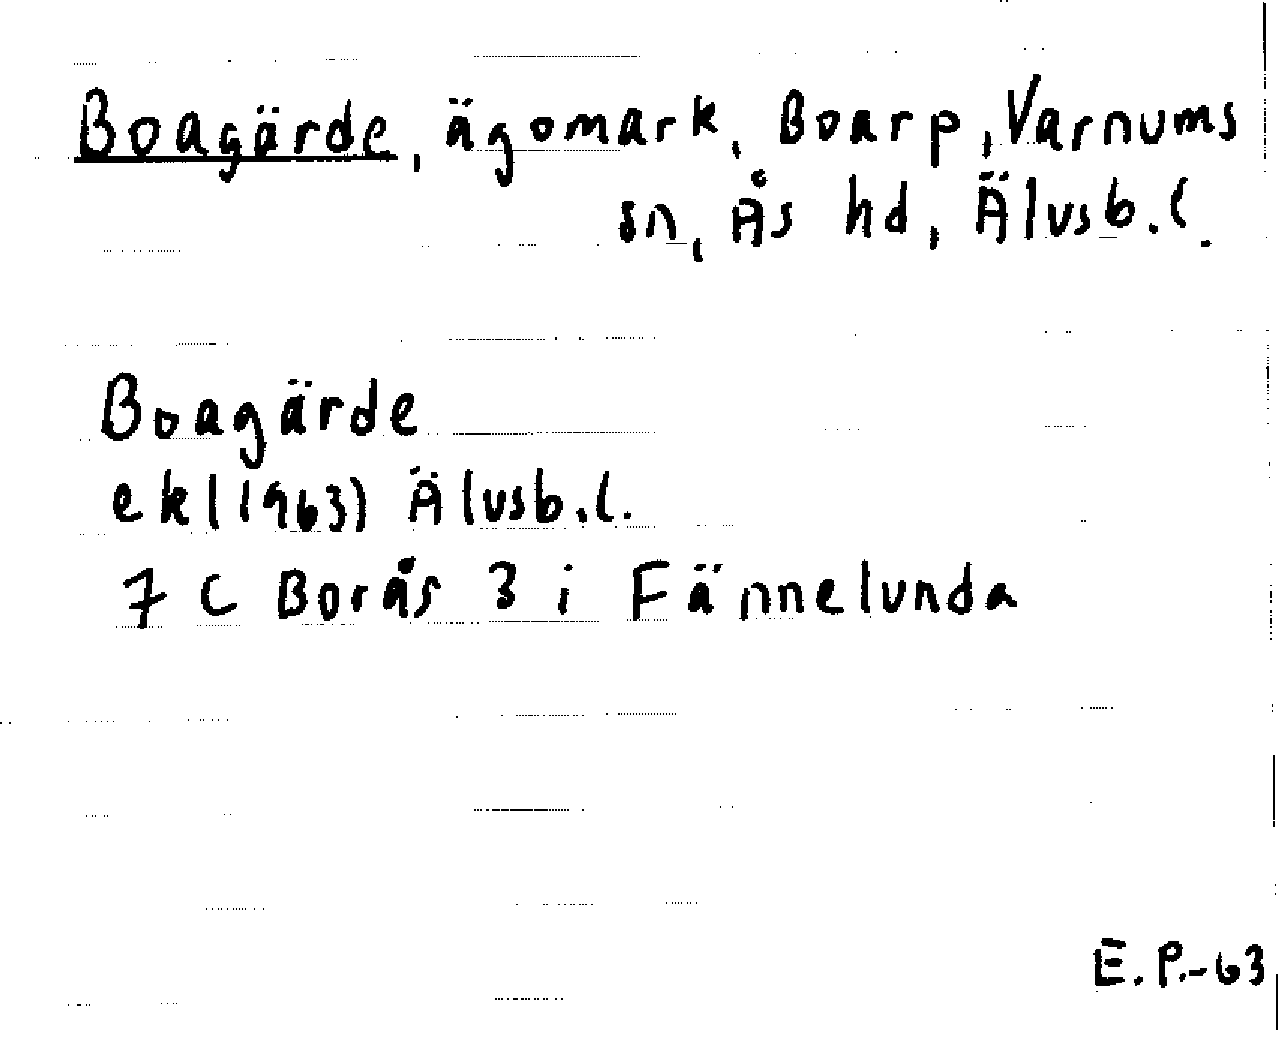 Boagärde, ägomark, Boarp, Varnums
sn, Ås hd, Älvsb.l.
Boagärde
ek (1963) Älvsb.l.
7 C Borås 3 i Fännelunda
E.P.-63